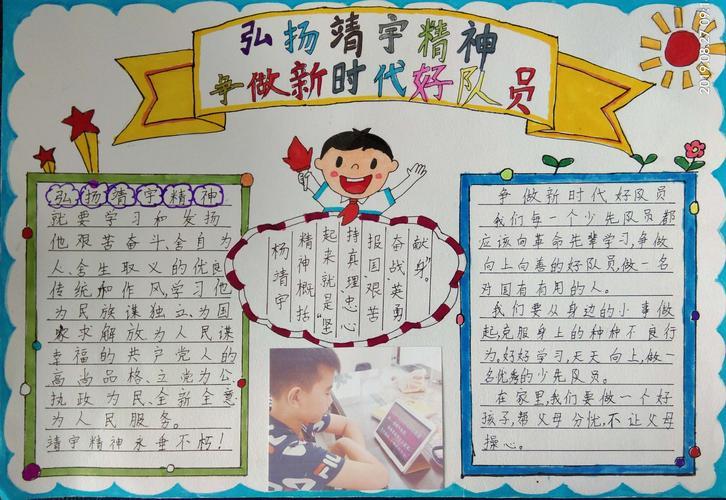 弘扬靖宇精神
争做新时代好队员
弘扬靖宇精神
就要学习和发扬
他艰苦奋斗、全自为
人、舍生取义的优良
传统和作风,学习他
为民族谋独立、为国
家求解放为人民谋
幸福的共产党人的
高尚品格、立党为公、
执政为民、全新全意
为人民服务。
靖宇精神永垂不朽!
杨靖宇
精神概括
起来就是“坚
持真理忠心
报国艰苦
奋战英勇
献身”。
争做新时代好队员
我们每一个少先队员都
应该向革命先辈学习,争做
向上向善的好队员,做一名
对国有有用的人。
我们要从身边的小事做
起,克服身上的种种不良行
为,好好学习,天天向上,做一
名优秀的少先队员。
在家里,我们要做一个好
孩子,帮父母分忧,不让父母
操心。
2019.08.27 09:1